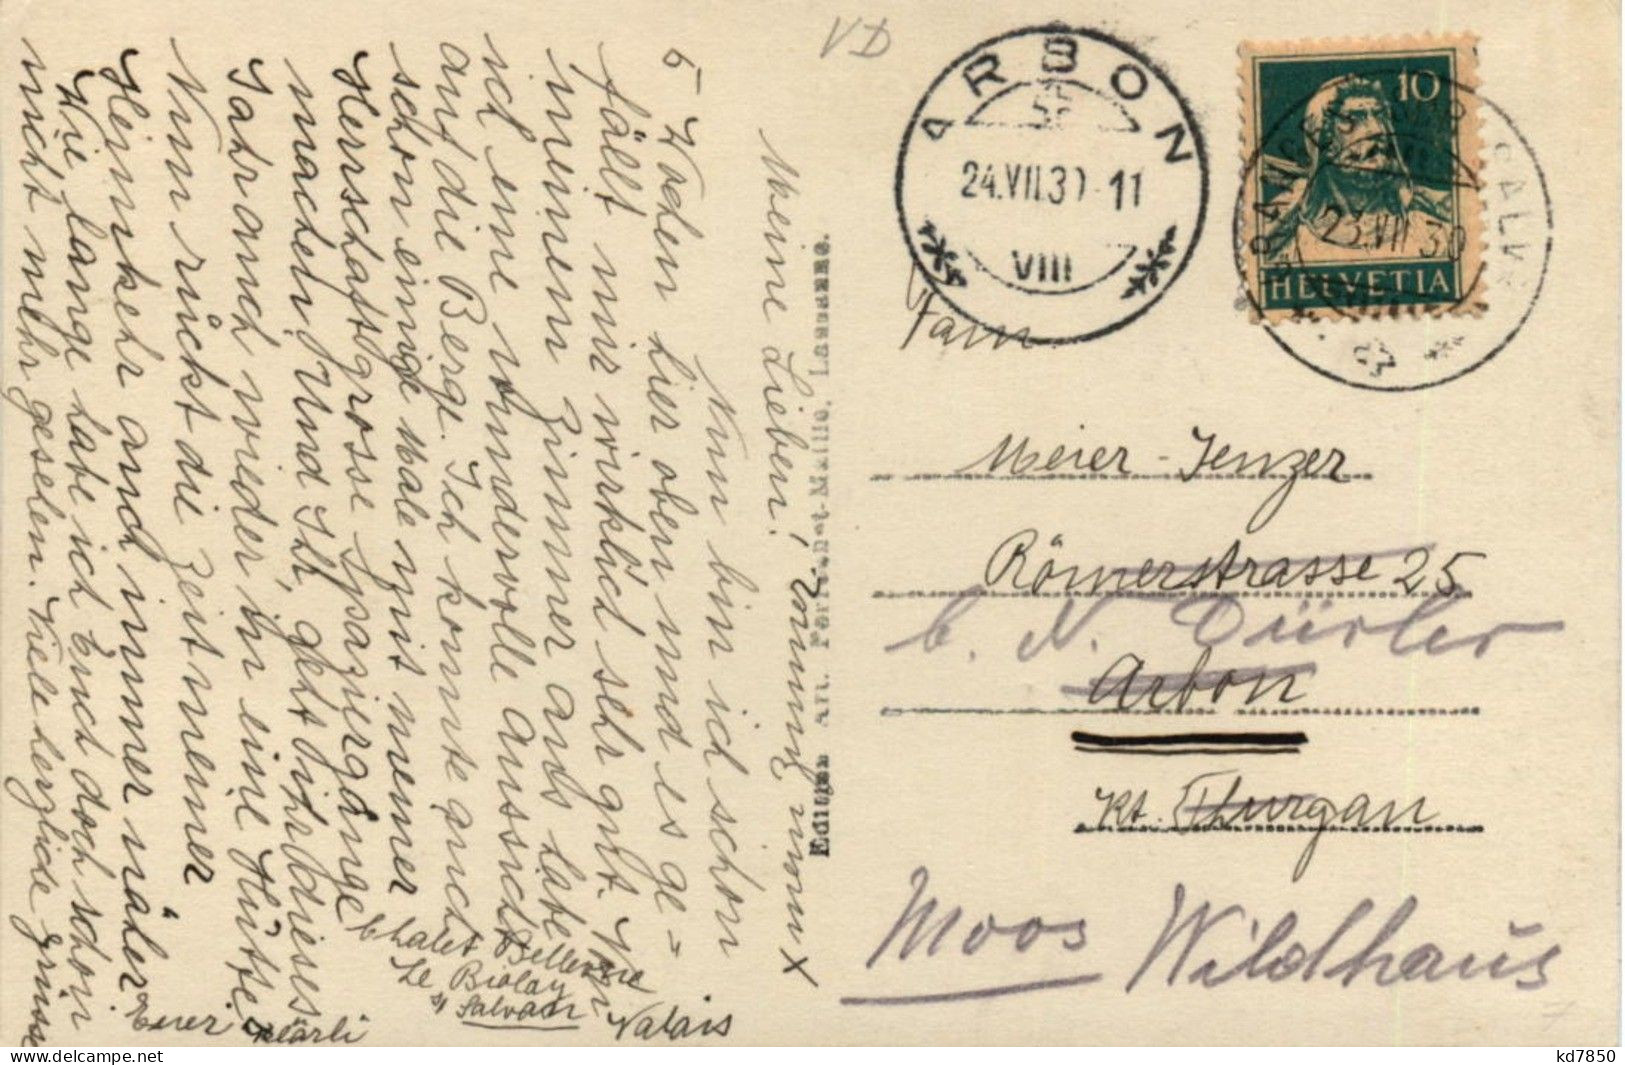 VD
ARBON
24.VII.30-11
VIII
10
HELVETIA
23.VII 30
SALV
Fam.
Meier-Jenzer
Römerstrasse 25
b. N. Dürler
Arbon
Kt. Thurgau
Moos Wildhaus
Edition Art. Perrochet-Matile, Lausanne.
Meine Lieben!
Nun bin ich schon
5 Wochen hier oben und es ge=
fällt mir wirklich sehr gut. Von
meinem Zimmer aus habe
ich eine wundervolle Aussicht
auf die Berge. Ich konnte auch
schon einige Male mit meiner
Herrschaft grosse Spaziergänge
machen. Und Ihr, geht Ihr dieses
Jahr auch wieder in eine Hütte.
Nun rückt die Zeit meiner
Heimkehr auch immer näher
Wie lange habe ich Euch doch schon
nicht mehr gesehen. Viele herzliche Grüsse
Euer Klärli
Chalet Bellevue
Le Biolay
s/ Salvan
Valais